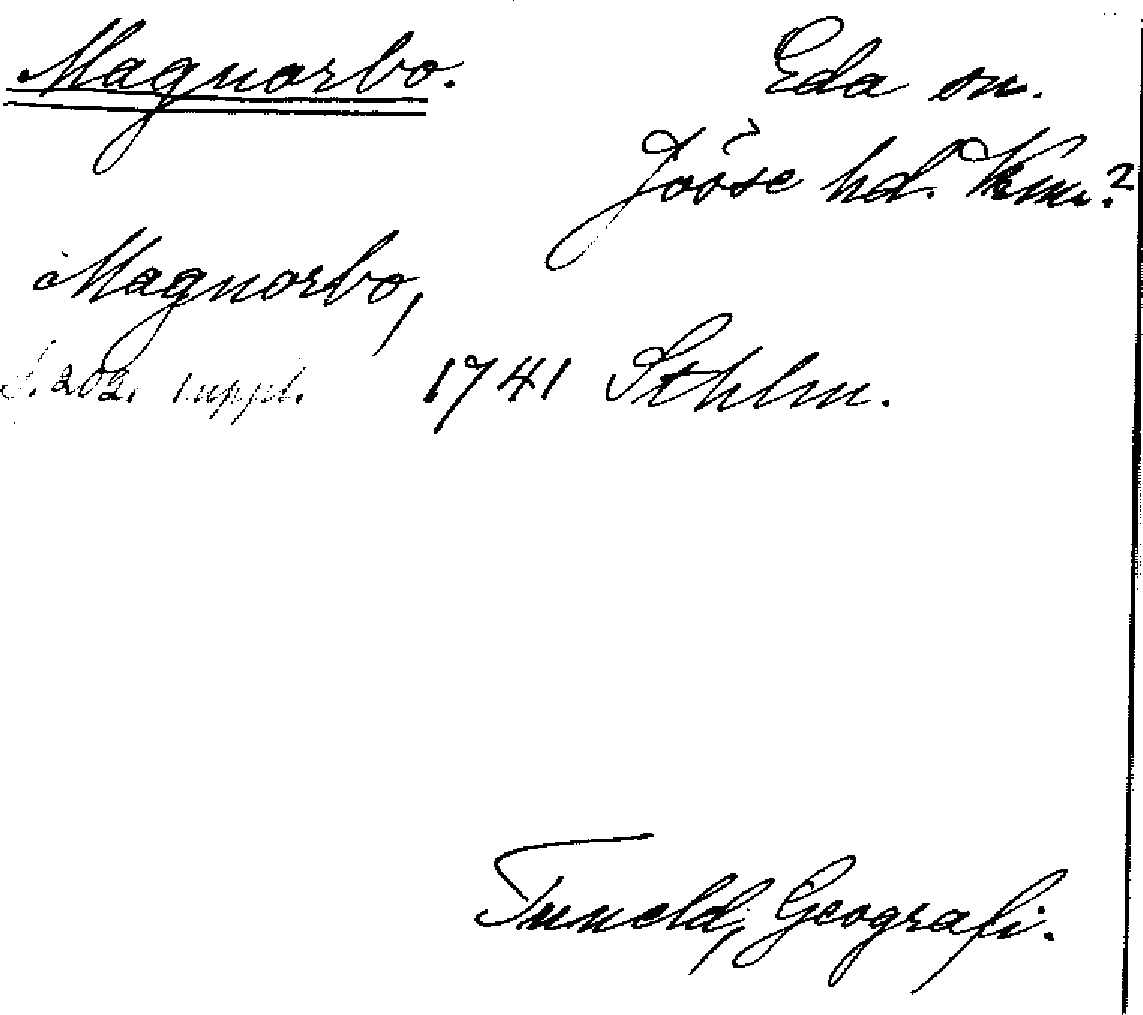 Magnorbo.
Eda sn.
Jösse hd. Vrm.?
Magnorbo,
S. 202. suppl. 1741 Sthlm.
Tuneld, Geografi.